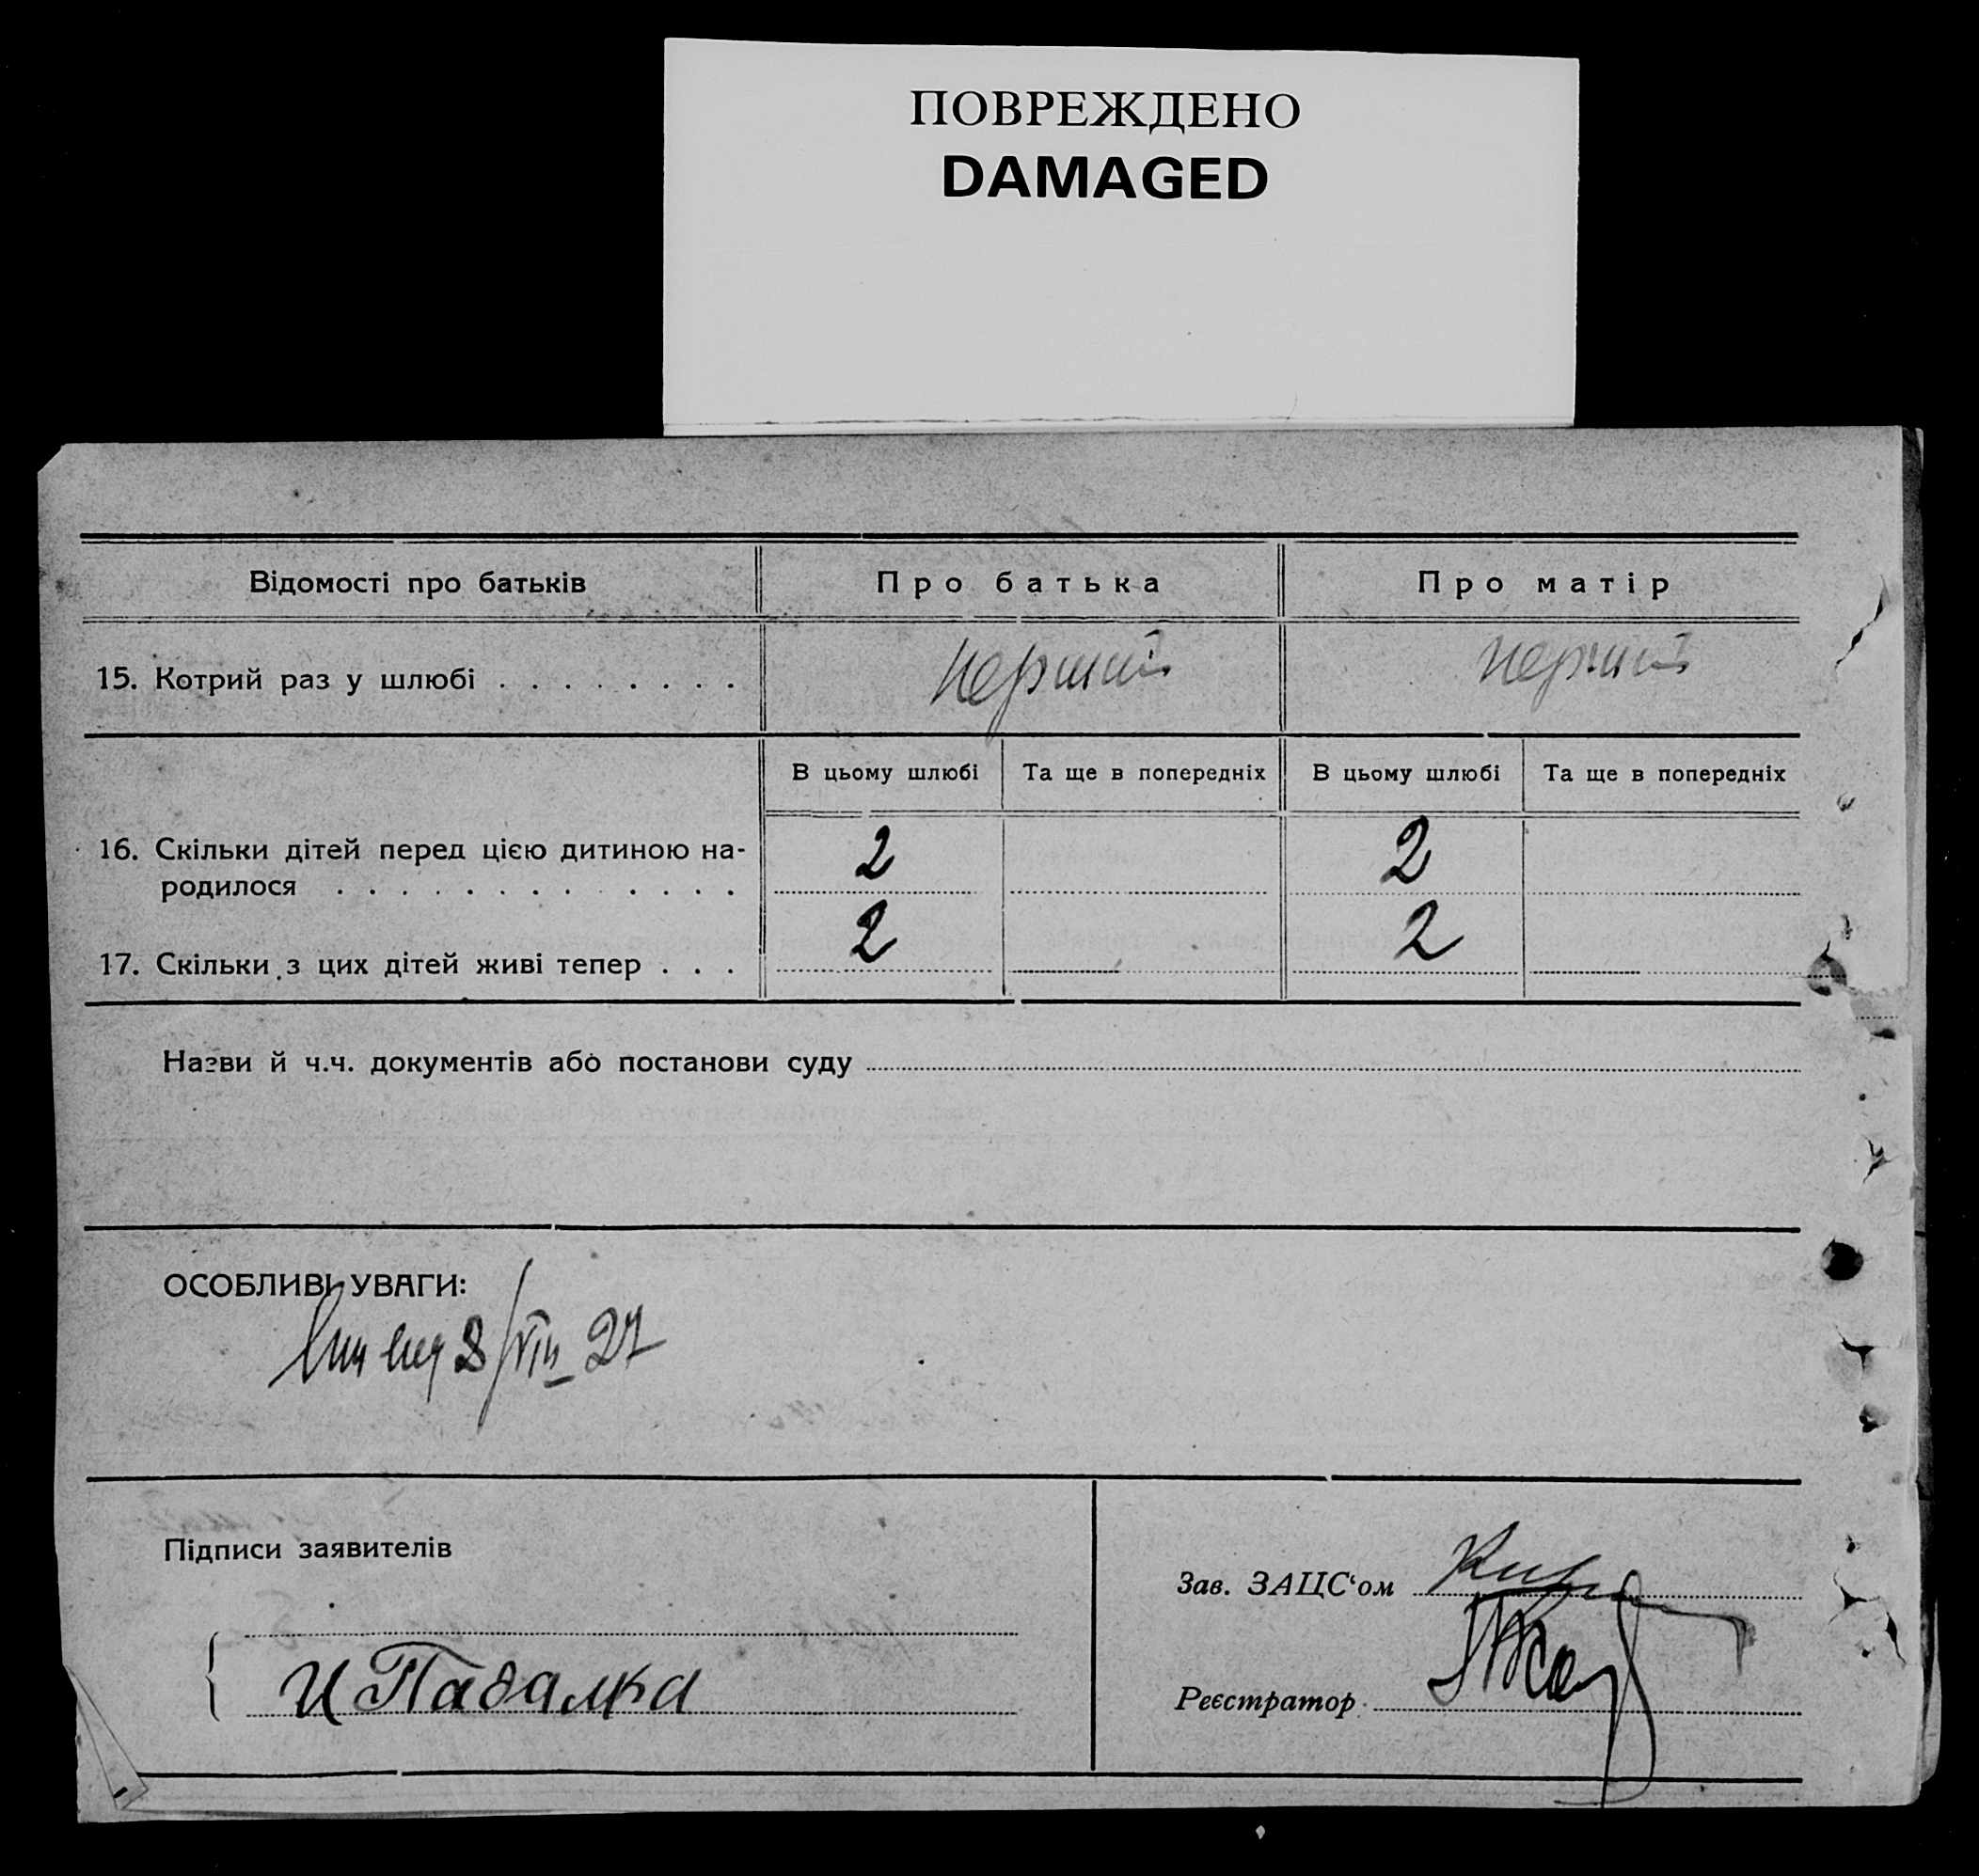 ПОВРЕЖДЕНО
DAMAGED
Відомості про батьків Про батька Про матір
15. Котрий раз у шлюбі . . . . . . . . перший перший
В цьому шлюбі Та ще в попередніх В цьому шлюбі Та ще в попередніх
16. Скільки дітей перед цією дитиною на-
родилося . . . . . . . . . . . . . 2 2
17. Скільки з цих дітей живі тепер . . . 2 2
Назви й ч.ч. документів або постанови суду
ОСОБЛИВІ УВАГИ:
8/VIII 27
Підписи заявителів
Зав. ЗАЦС‘ом
И Падалка
Реєстратор